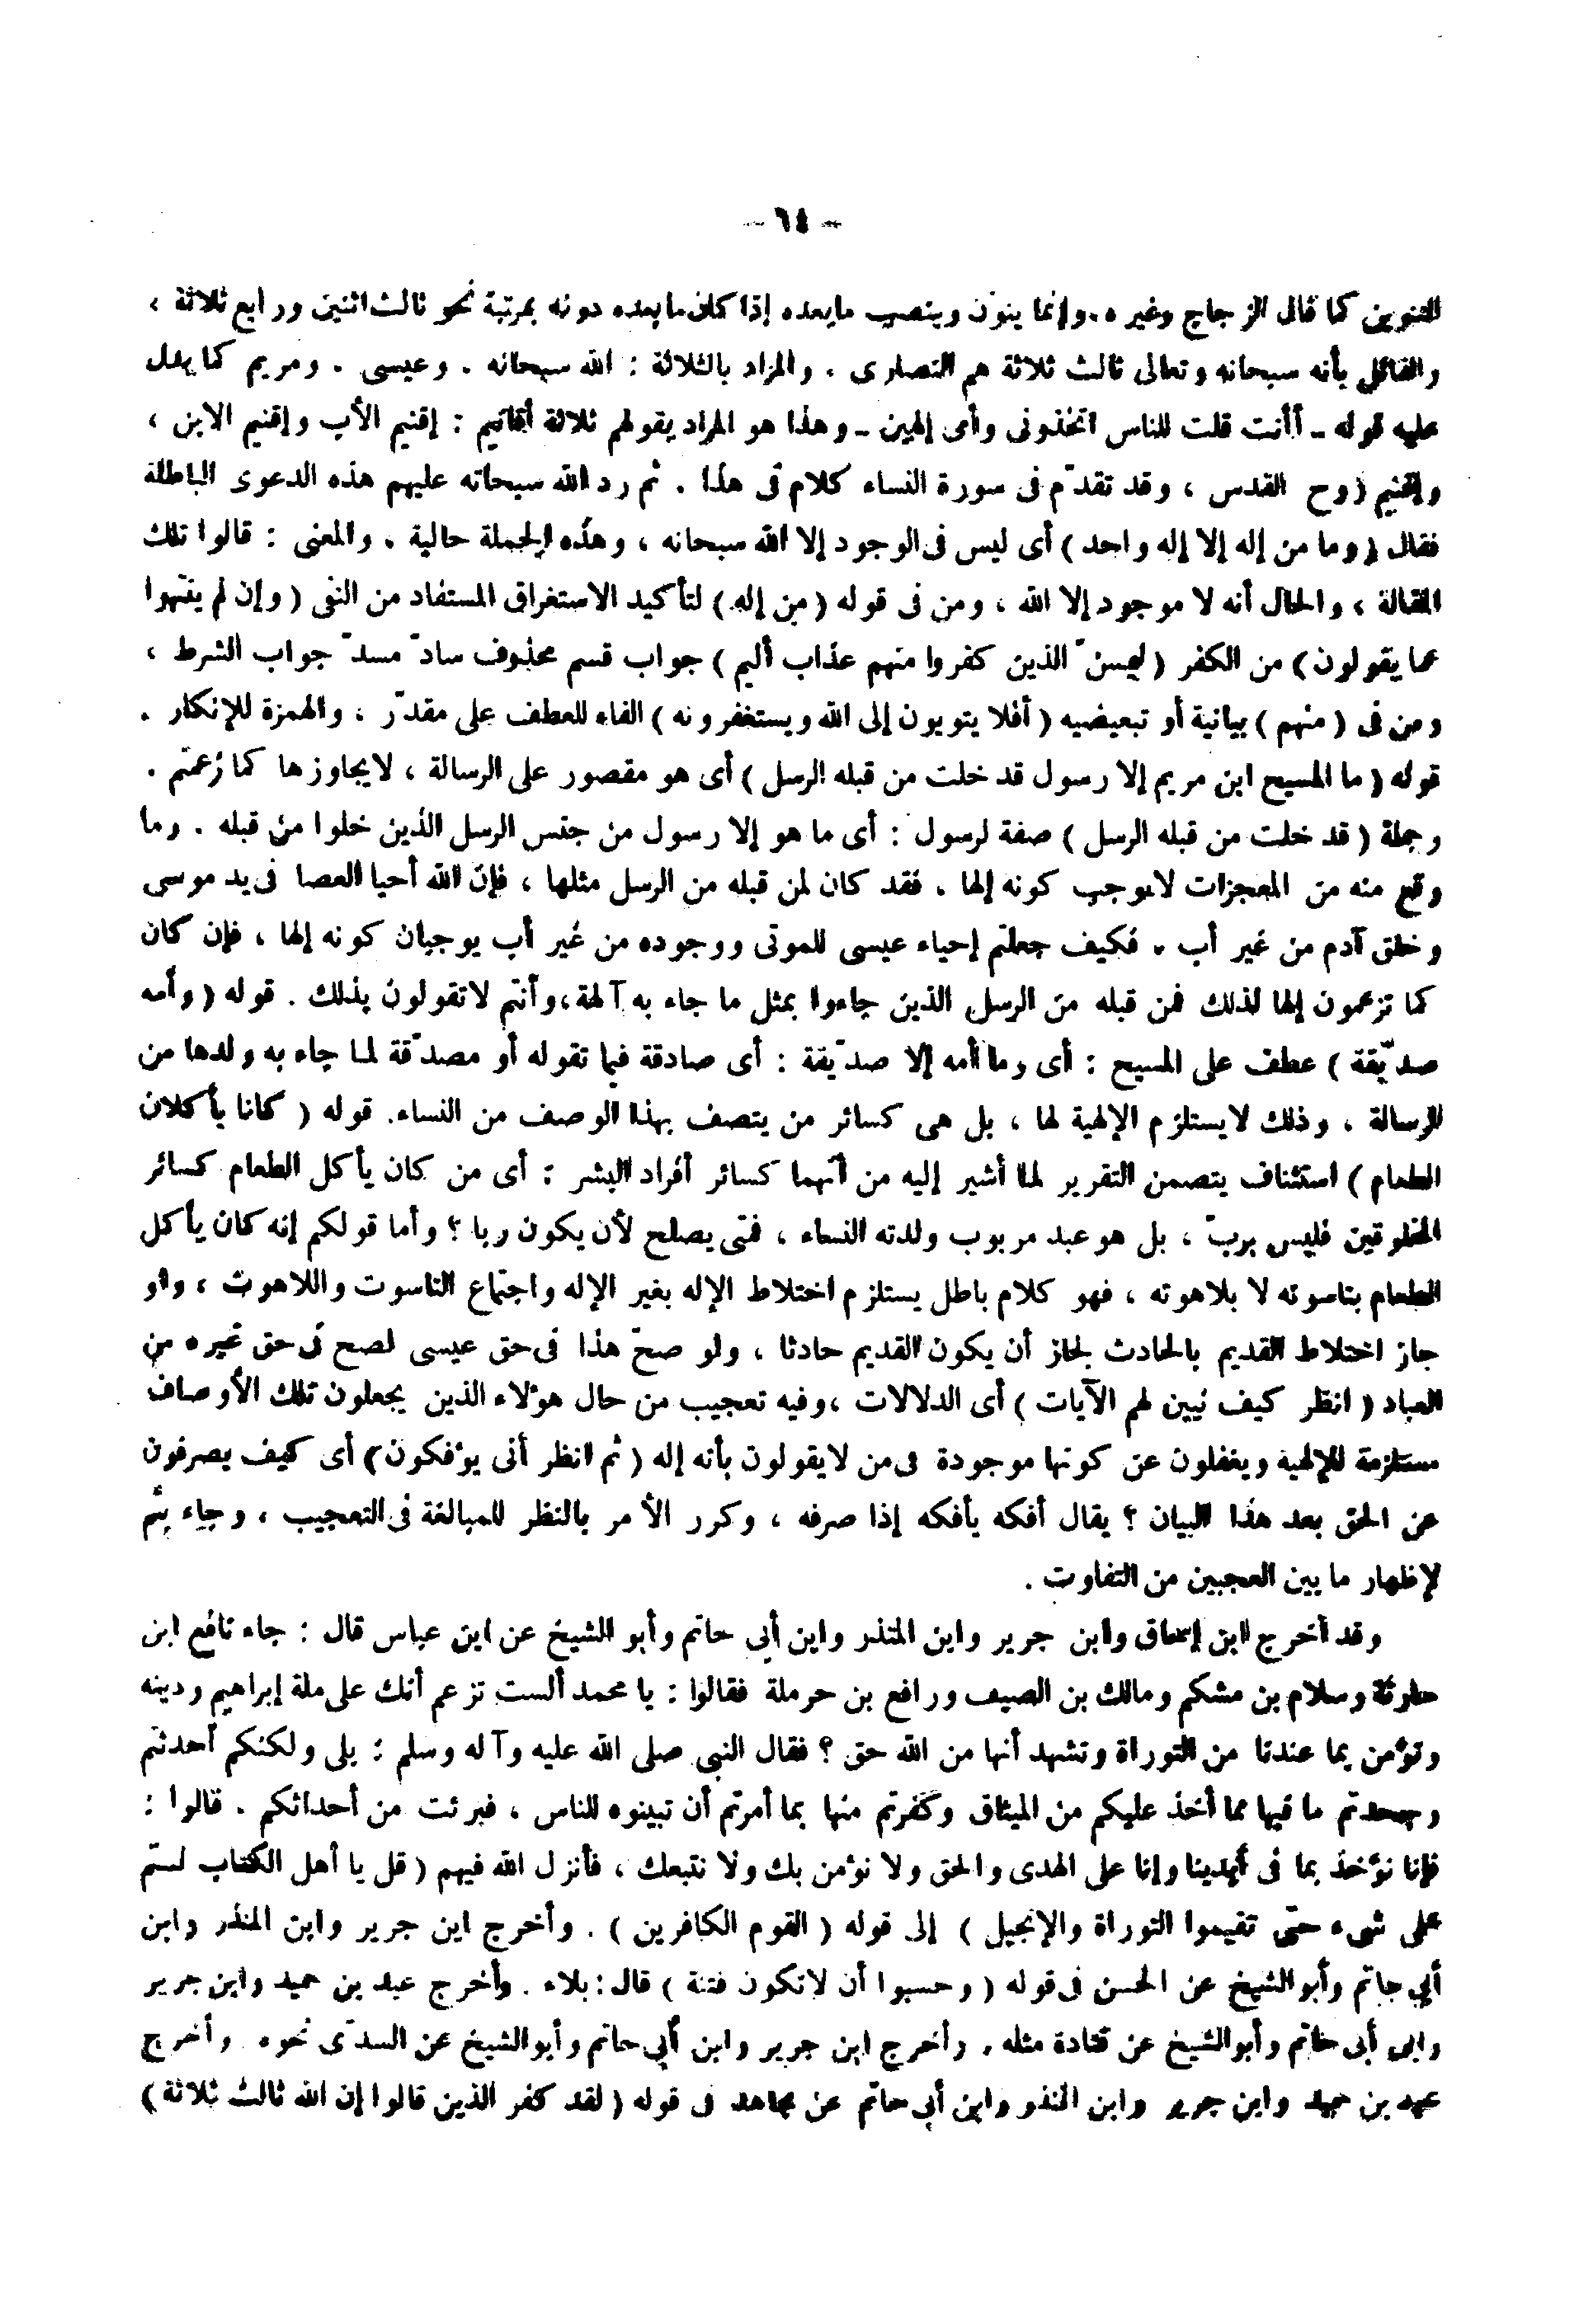 - ٦٤ -
التنوين كما قال الزجاج وغيره، وإنما ينوّن وينصب مابعده إذا كان مابعده دونه بمرتبة نحو ثالث اثنين ورابع ثلاثة ،
والقائل بأنه سبحانه وتعالى ثالث ثلاثة هم النصارى . والمراد بالثلاثة : الله سبحانه . وعيسى . ومريم كما يدل
عليه قوله ـ أأنت قلت للناس اتخذونى وأمى إلهين ـ وهذا هو المراد بقولهم ثلاثة أقانيم : إقنيم الأب وإقنيم الابن ،
وإقنيم روح القدس ، وقد تقدّم فى سورة النساء كلام فى هذا . ثم رد الله سبحانه عليهم هذه الدعوى الباطلة
فقال ( وما من إله إلا إله واحد ) أى ليس فى الوجود إلا الله سبحانه ، وهذه الجملة حالية . والمعنى : قالوا تلك
المقالة ، والحال أنه لا موجود إلا الله ، ومن فى قوله ( من إله ) لتأكيد الاستغراق المستفاد من النفى ( وإن لم ينتهوا
عما يقولون ) من الكفر ( ليمسنّ الذين كفروا منهم عذاب أليم ) جواب قسم محذوف سادّ مسدّ جواب الشرط ،
ومن فى ( منهم ) بيانية أو تبعيضيه ( أفلا يتوبون إلى الله ويستغفرونه ) الفاء للعطف على مقدّر ، والهمزة للإنكار .
قوله ( ما المسيح ابن مريم إلا رسول قد خلت من قبله الرسل ) أى هو مقصور على الرسالة ، لايجاوزها كما زعمتم .
وجملة ( قد خلت من قبله الرسل ) صفة لرسول : أى ما هو إلا رسول من جنس الرسل الذين خلوا من قبله . وما
وقع منه من المعجزات لايوجب كونه إلها ، فقد كان لمن قبله من الرسل مثلها ، فإن الله أحيا العصا فى يد موسى
وخلق آدم من غير أب ، فكيف جعلتم إحياء عيسى للموتى ووجوده من غير أب يوجبان كونه إلها ، فإن كان
كما تزعمون إلها لذلك فمن قبله من الرسل الذين جاءوا بمثل ما جاء به آلهة، وأنتم لاتقولون بذلك . قوله ( وأمه
صدّيقة ) عطف على المسيح : أى وما أمه إلا صدّيقة : أى صادقة فيما تقوله أو مصدّقة لما جاء به ولدها من
الرسالة ، وذلك لايستلزم الإلهية لها ، بل هى كسائر من يتصف بهذا الوصف من النساء. قوله ( كانا يأكلان
الطعام ) استئناف يتضمن التقرير لما أشير إليه من أنهما كسائر أفراد البشر : أى من كان يأكل الطعام كسائر
المخلوقين فليس بربّ ، بل هو عبد مربوب ولدته النساء ، فمتى يصلح لأن يكون ربا ؟ وأما قولكم إنه كان يأكل
الطعام بناسوته لا بلاهوته ، فهو كلام باطل يستلزم اختلاط الإله بغير الإله واجتماع الناسوت واللاهوت ، ولو
جاز اختلاط القديم بالحادث لجاز أن يكون القديم حادثا ، ولو صحّ هذا فى حق عيسى لصح فى حق غيره من
العباد ( انظر كيف نبين لهم الآيات ) أى الدلالات ، وفيه تعجيب من حال هؤلاء الذين يجعلون تلك الأوصاف
مستلزمة للإلهية ويغفلون عن كونها موجودة فى من لايقولون بأنه إله ( ثم انظر أنى يؤفكون ) أى كيف يصرفون
عن الحق بعد هذا البيان ؟ يقال أفكه يأفكه إذا صرفه ، وكرر الأمر بالنظر للمبالغة فى التعجيب ، وجاء بثم
لإظهار ما بين العجبين من التفاوت .
وقد أخرج ابن إسحاق وابن جرير وابن المنذر وابن أبى حاتم وأبو الشيخ عن ابن عباس قال : جاء نافع ابن
حارثة وسلام بن مشكم ومالك بن الصيف ورافع بن حرملة فقالوا : يا محمد ألست تزعم أنك على ملة إبراهيم ودينه
وتؤمن بما عندنا من التوراة وتشهد أنها من الله حق ؟ فقال النبى صلى الله عليه وآله وسلم : بلى ولكنكم أحدثتم
وجحدتم ما فيها مما أخذ عليكم من الميثاق وكفرتم منها بما أمرتم أن تبينوه للناس ، فبرئت من أحداثكم . قالوا :
فإنا نؤخذ بما فى أيدينا وإنا على الهدى والحق ولا نؤمن بك ولا نتبعك ، فأنزل الله فيهم ( قل يا أهل الكتاب لستم
على شىء حتى تقيموا التوراة والإنجيل ) إلى قوله ( القوم الكافرين ) . وأخرج ابن جرير وابن المنذر وابن
أبى حاتم وأبو الشيخ عن الحسن فى قوله ( وحسبوا أن لاتكون فتنة ) قال : بلاء . وأخرج عبد بن حميد وابن جرير
وابن أبى حاتم وأبو الشيخ عن قتادة مثله . وأخرج ابن جرير وابن أبى حاتم وأبو الشيخ عن السدّى نحوه . وأخرج
عبد بن حميد وابن جرير وابن المنذر وابن أبى حاتم عن مجاهد فى قوله ( لقد كفر الذين قالوا إن الله ثالث ثلاثة )